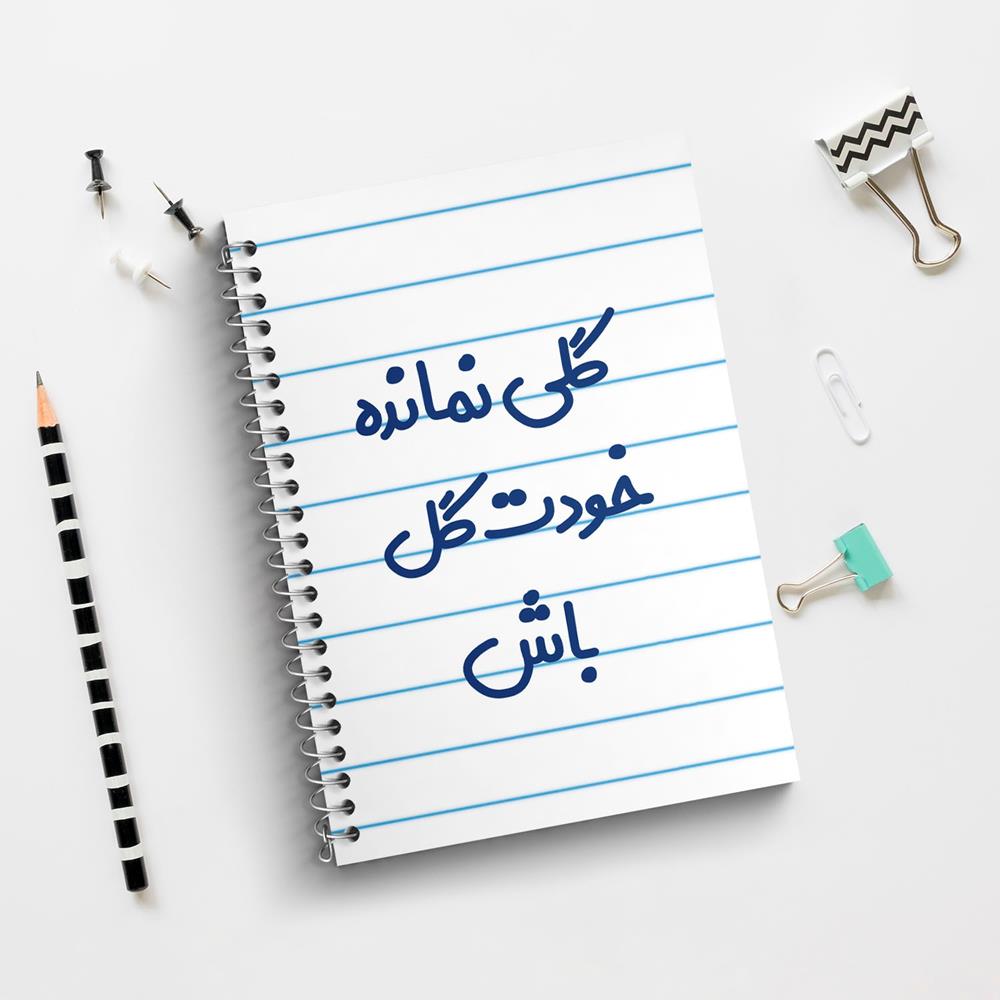 گلی نمانده
خودت گل
باش